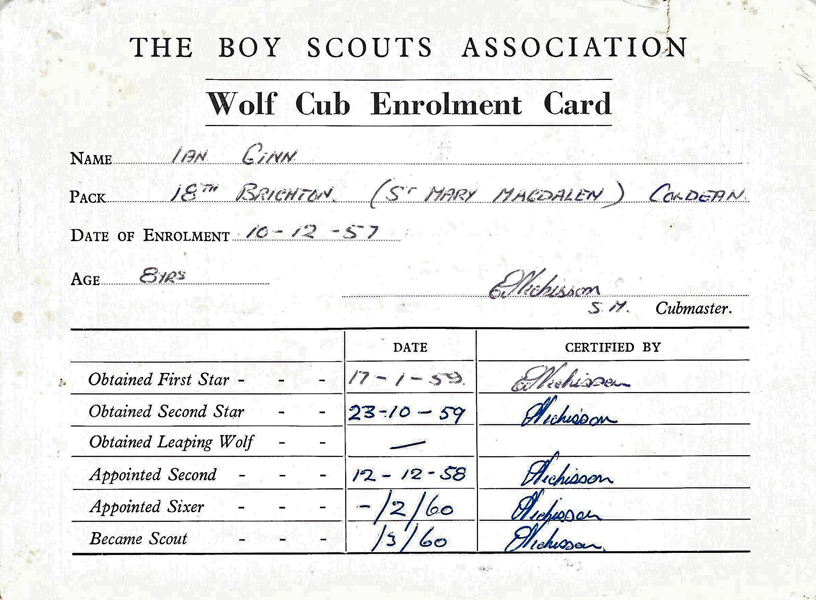 THE BOY SCOUTS ASSOCIATION
Wolf Cub Enrolment Card
NAME IAN GINN
PACK 18TH BRIGHTON. (ST MARY MAGDALEN) COLDEAN.
DATE OF ENROLMENT 10-12-57
AGE 8YRS
S.M. Cubmaster.
DATE CERTIFIED BY
Obtained First Star - - - 17-1-59.
Obtained Second Star - - 23-10-59
Obtained Leaping Wolf - - —
Appointed Second - - - 12-12-58
Appointed Sixer - - - -/2/60
Became Scout - - - /3/60